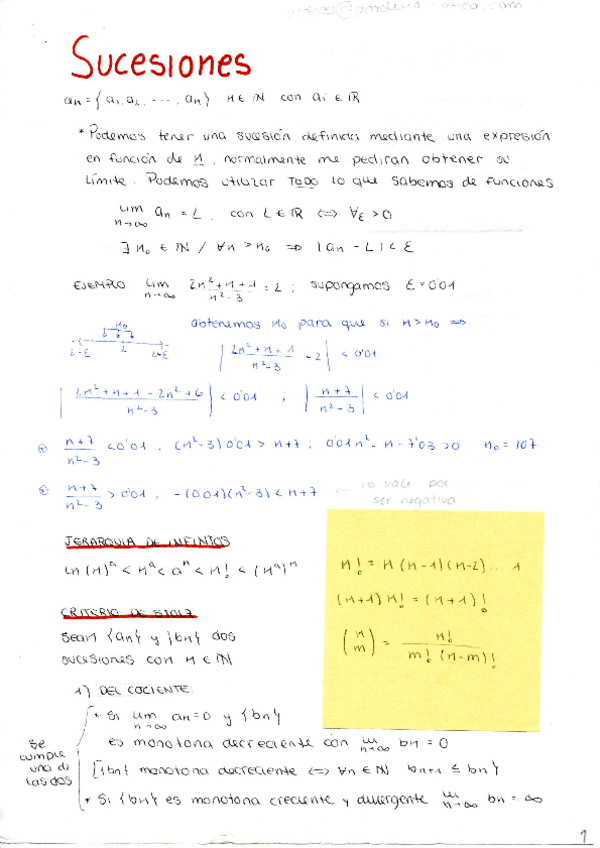 Sucesiones
an = {a1, a2, ..., an} n ∈ ℕ con ai ∈ ℝ
* Podemos tener una sucesión definida mediante una expresión
en función de n, normalmente me pediran obtener su
límite. Podemos utilizar TODO lo que sabemos de funciones
lim n→∞ an = L, con L ∈ ℝ ⇔ ∀ε > 0
∃ n₀ ∈ ℕ / ∀n > n₀ ⇒ |an - L| < ε
EJEMPLO lim n→∞ (2n²+n+1)/(n²-3) = 2 ; supongamos ε = 0'01
obtenemos n₀ para que si n > n₀ ⇒
n₀
L-ε L L+ε
|(2n²+n+1)/(n²-3) - 2| < 0'01
|(2n²+n+1-2n²+6)/(n²-3)| < 0'01 ; |(n+7)/(n²-3)| < 0'01
(n+7)/(n²-3) < 0'01, (n²-3) 0'01 > n+7 ; 0'01n² - n - 7'03 > 0 n₀ = 107
(n+7)/(n²-3) > 0'01, -(0'01)(n²-3) < n+7 ← no vale por
ser negativa
JERARQUIA DE INFINITOS
Ln(n)^a < n^a < a^n < n! < (n^a)^n
n! = n (n-1)(n-2)... 1
(n+1) n! = (n+1)!
(n m) = n! / m! (n-m)!
CRITERIO DE STOLZ
Sean {an} y {bn} dos
sucesiones con n ∈ ℕ
1) DEL COCIENTE:
* Si lim n→∞ an = 0 y {bn}
es monotona decreciente con lim n→∞ bn = 0
[{bn} monotona decreciente ⇔ ∀n ∈ ℕ bn+1 ≤ bn}
* Si {bn} es monotona creciente y divergente lim n→∞ bn = ∞
Se
cumple
una de
las dos
1